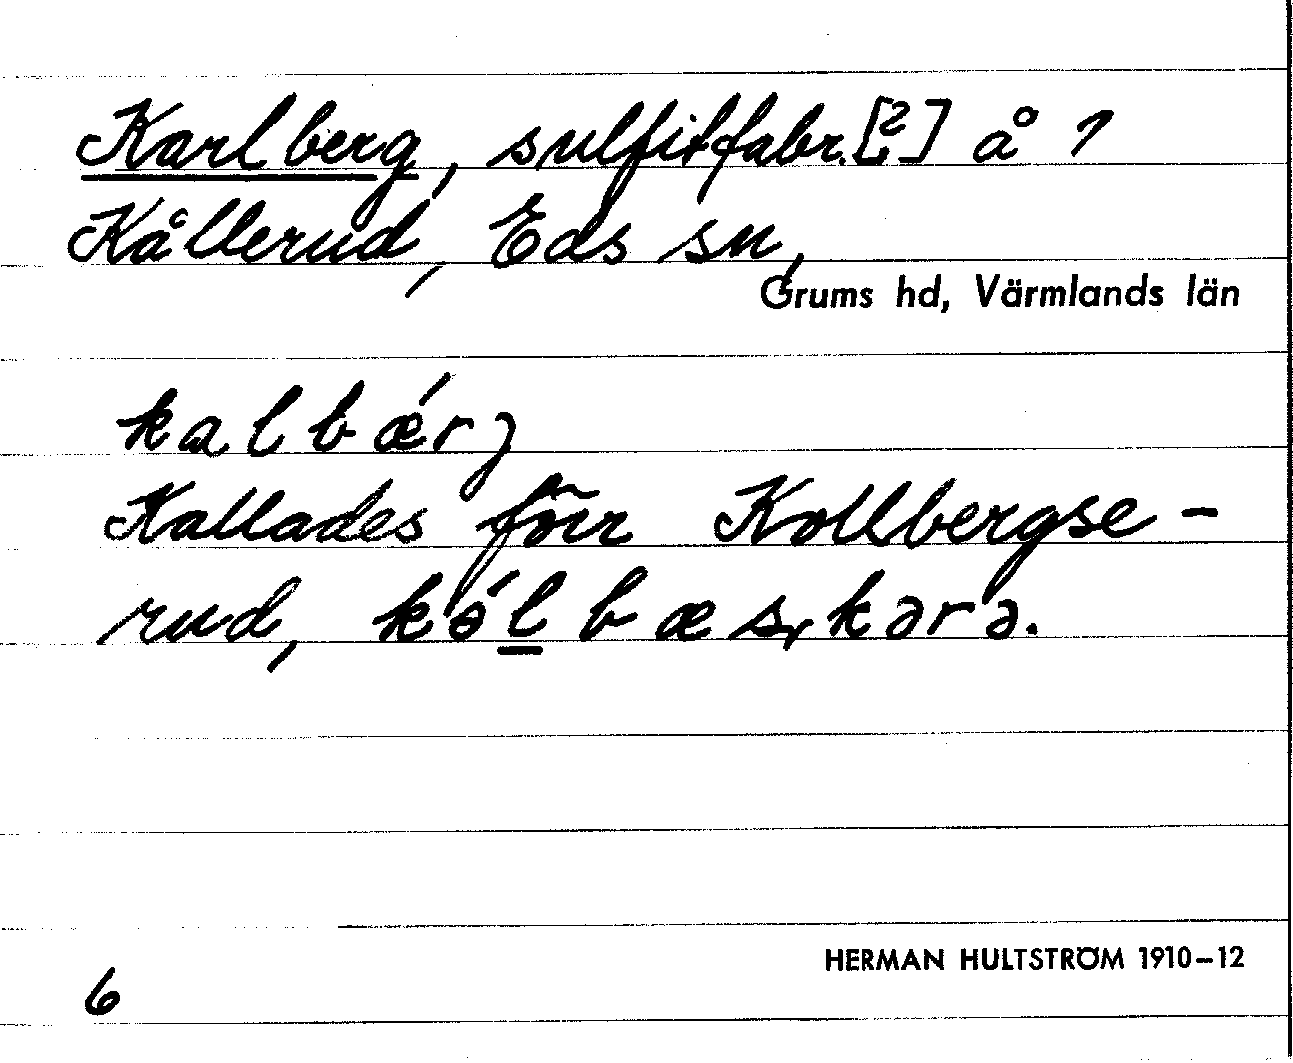 Karlberg, sulfitfabr. [?] å 1
Kållerud, Eds sn,
Grums hd, Värmlands län
kalbǽrȷ
Kallades förr Kollbergse-
rud, kǿl̲bæskərə.
HERMAN HULTSTRÖM 1910–12
6